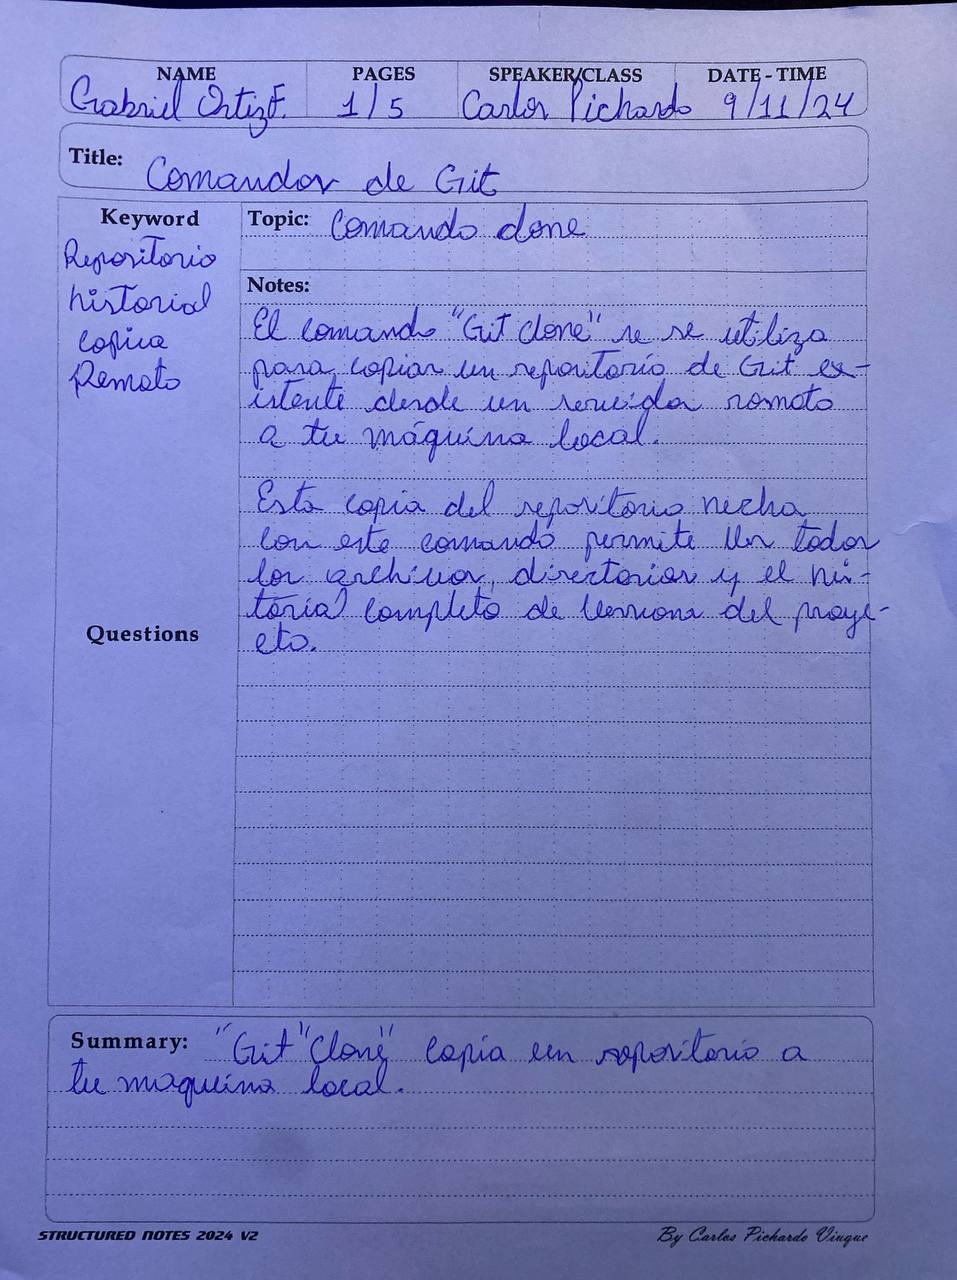 NAME PAGES SPEAKER/CLASS DATE - TIME
Gabriel Ortiz F. 1/5 Carlos Pichardo 9/11/24
Title: Comandos de Git
Keyword
Repositorio
historial
copica
Remoto
Questions
Topic: Comando clone
Notes:
El comando "Git clone" se se utiliza
para copiar un repositorio de Git ex-
istente desde un servidor romoto
a tu máquina local.
Esta copia del repositorio hecha
con este comando permite ver todos
los archivos, directorios y el his-
torial completo de versions del proye-
cto.
Summary: "Git "Clone" copia un repositorio a
tu maquina local.
STRUCTURED NOTES 2024 V2
By Carlos Pichardo Viuque